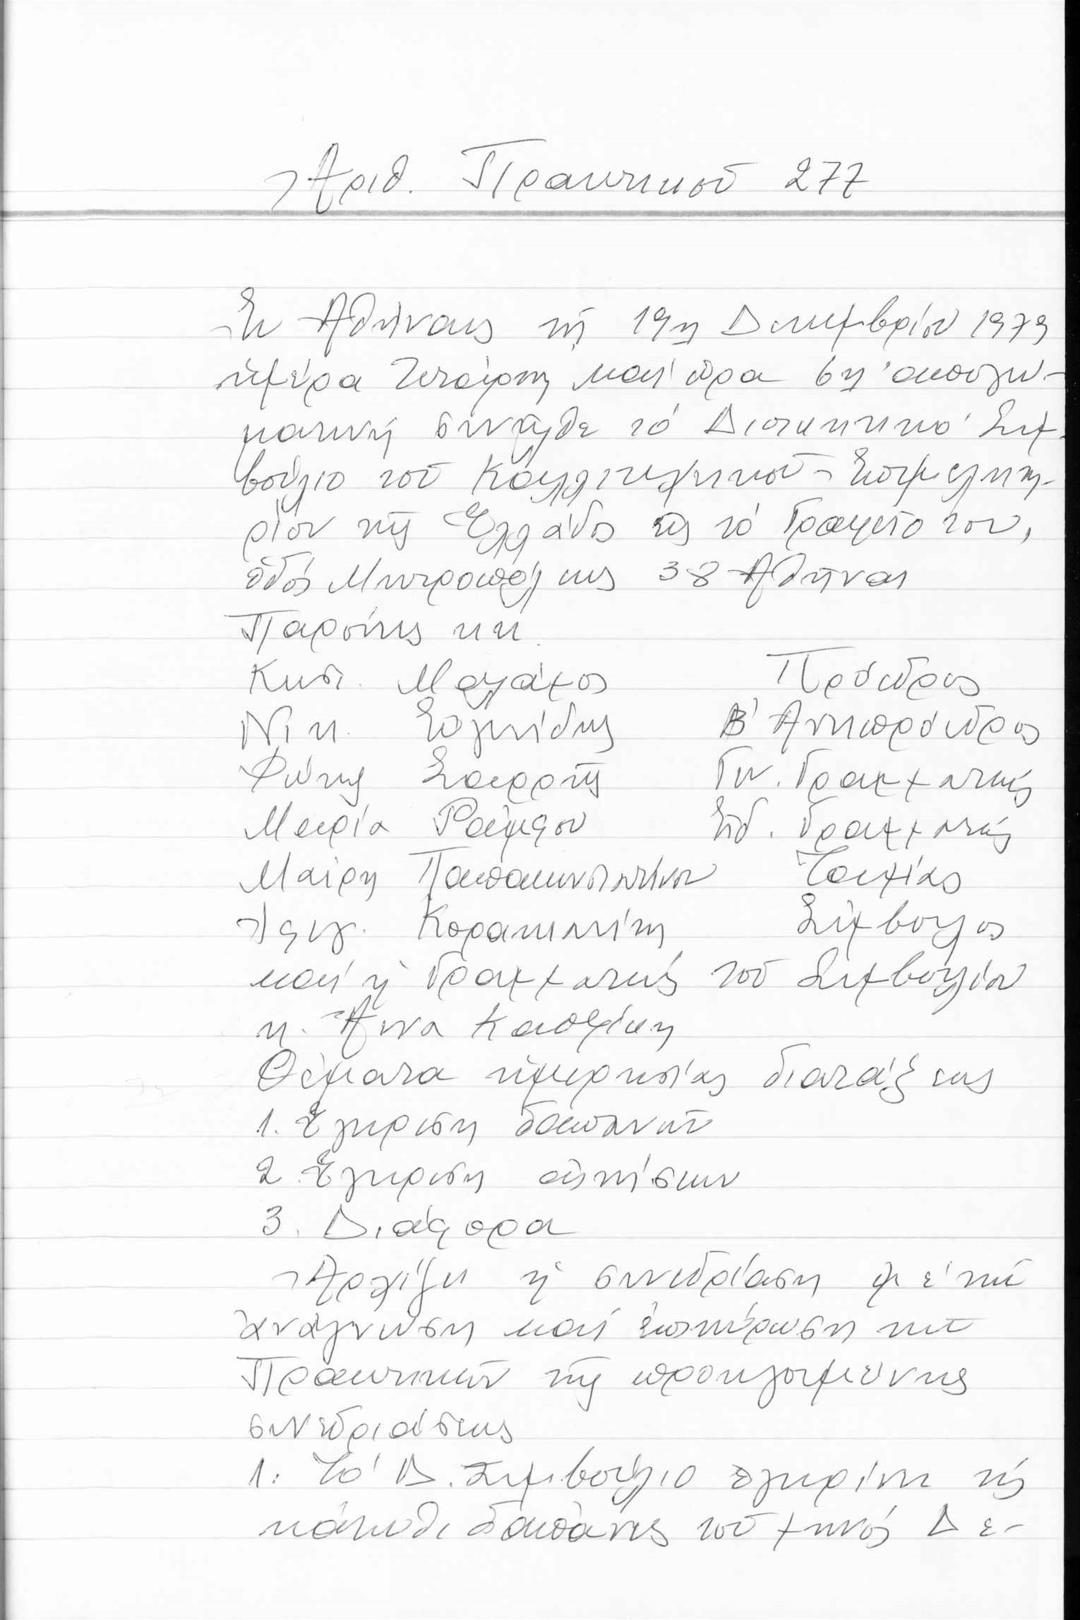 Ἀριθ. Πρακτικοῦ 277
Ἐν Ἀθήναις τῇ 19η Δεκεμβρίου 1979
ἡμέρα Τετάρτη καί ὥρα 6η ἀπογευ-
ματινή συνῆλθε τό Διοικητικό Συμ-
βούλιο τοῦ Καλλιτεχνικοῦ Ἐπιμελητη-
ρίου τῆς Ἑλλάδος εἰς τό Γραφεῖο του,
ὁδός Μητροπόλεως 38 Ἀθῆναι
Παρόντες κ.κ.
Κωστ. Μαλάμος Πρόεδρος
Νικ. Εὐγενίδης Β' Ἀντιπρόεδρος
Φώτης Σαρρῆς Γεν. Γραμματεύς
Μαρία Ράμφου Εἰδ. Γραμματεύς
Μαίρη Παπακωνσταντίνου Ταμίας
Ἀφιγ. Καρακατσάνη Σύμβουλος
καί ἡ Γραμματεύς τοῦ Συμβουλίου
κ. Ἄννα
Θέματα ἡμερησίας διατάξεως
1. Ἔγκριση δαπανῶν
2. Ἔγκριση αἰτήσεων
3. Διάφορα
Ἀρχίζει ἡ συνεδρίαση μέ τήν
ἀνάγνωση καί ἐπικύρωση τῶν
Πρακτικῶν τῆς προηγουμένης
συνεδριάσεως
1. Τό Δ. Συμβούλιο ἐγκρίνει τίς
κάτωθι δαπάνες τοῦ μηνός Δε-